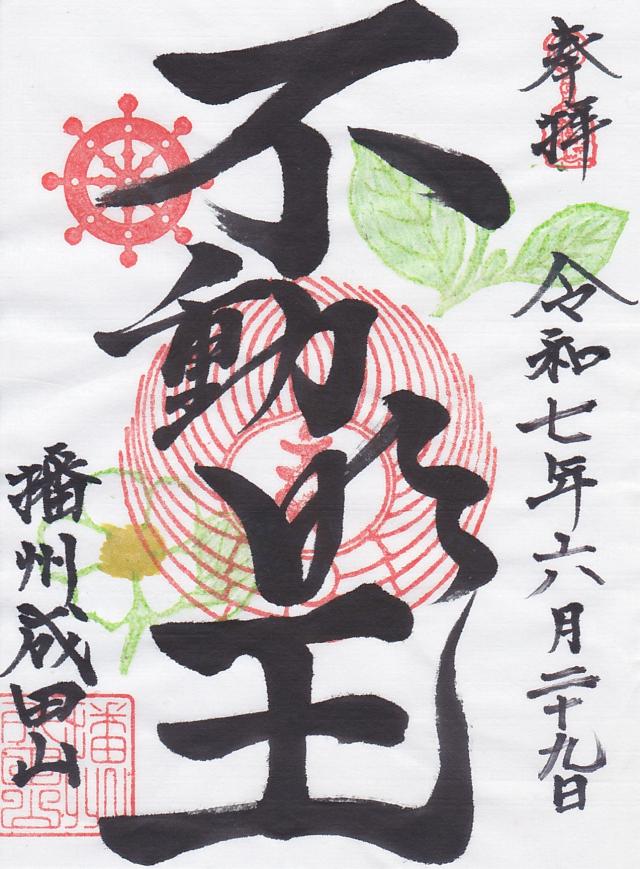 奉拝
令和七年六月二十九日
不動明王
播州成田山